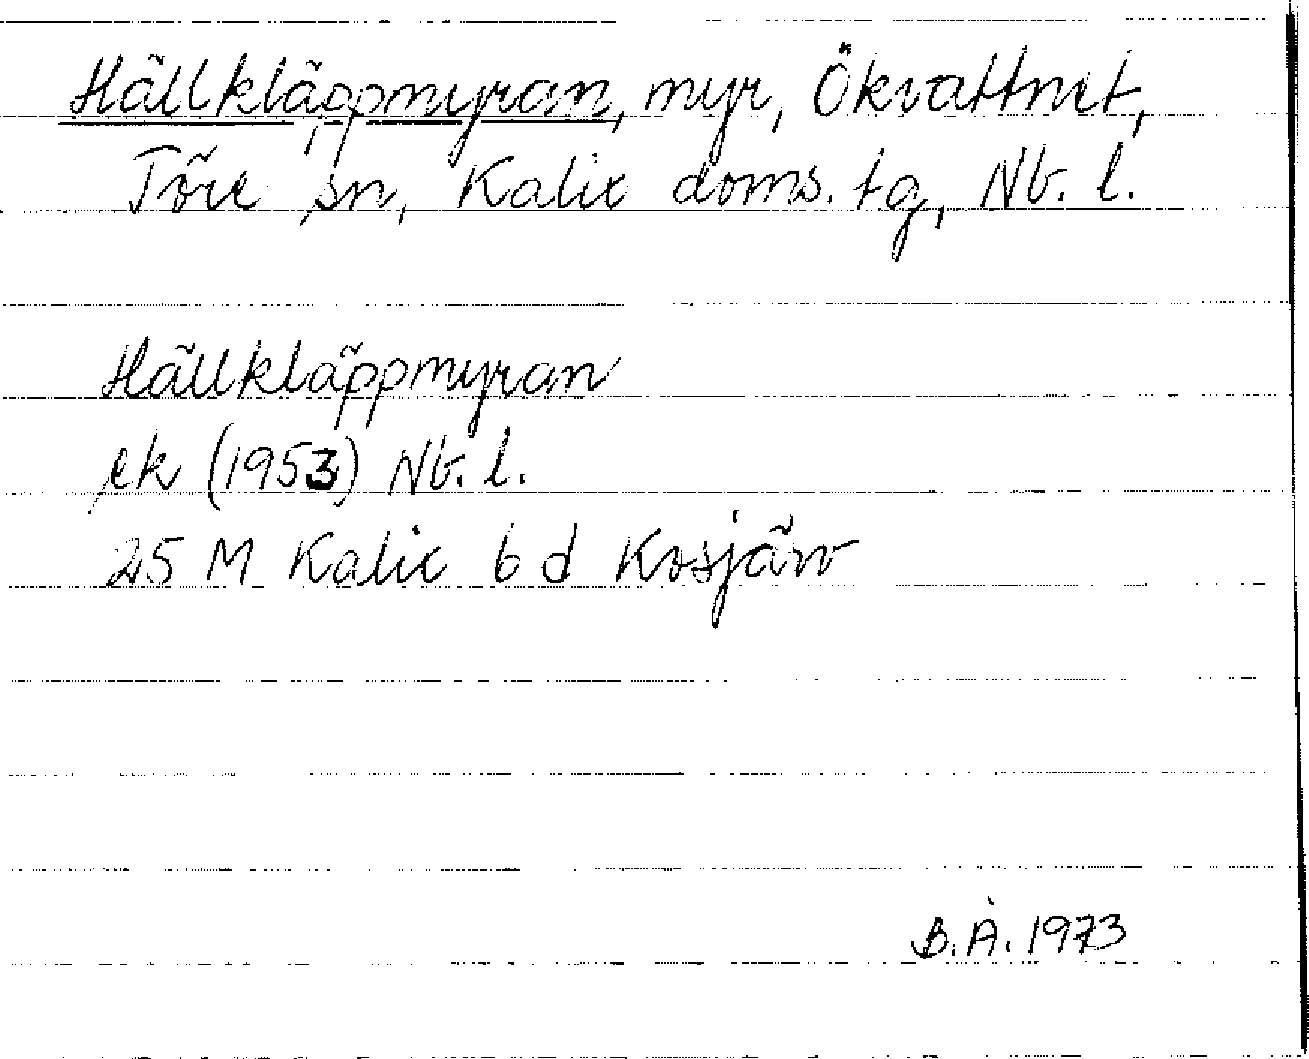 Hällkläppmyran, myr, Ökvattnet,
Töre sn, Kalix doms. tg, Nb. l.
Hällkläppmyran
ek (1953) Nb. l.
25 M Kalix 6 d Kosjärv
B.Å. 1973